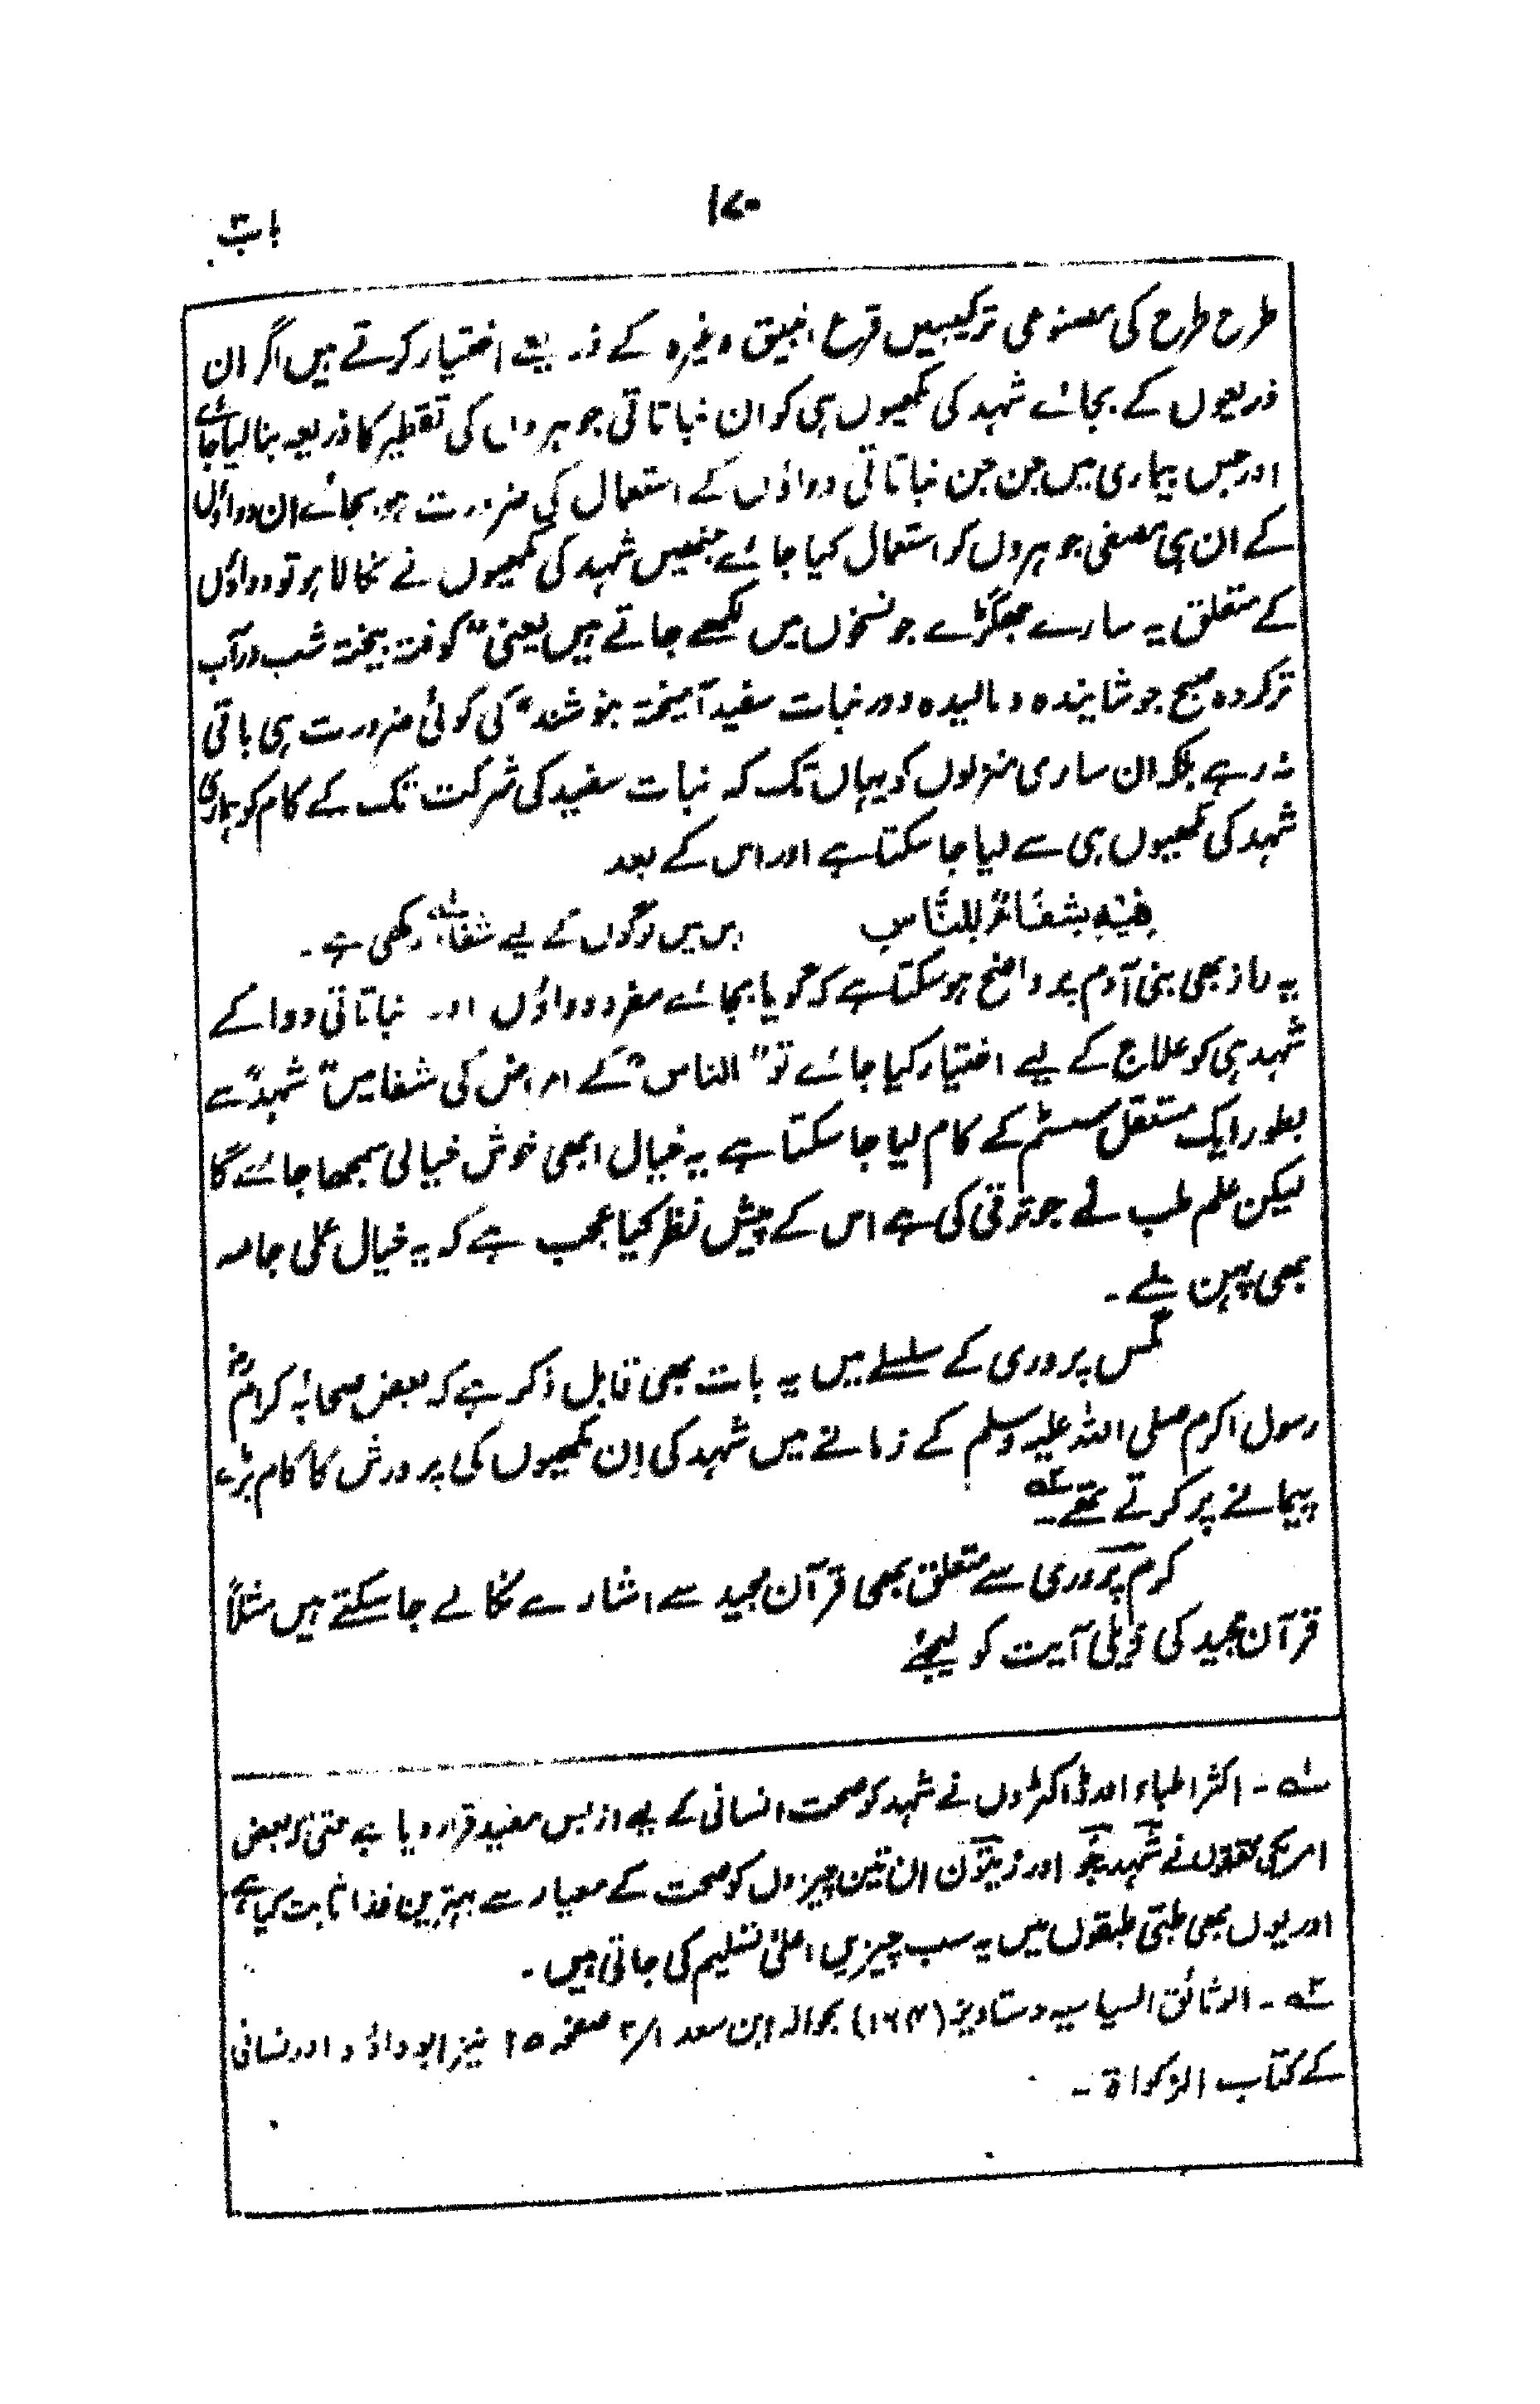 ۱۷۰
باب
طرح طرح کی مصنوعی ترکیبیں قرع انبیق وغیرہ کے ذریعے اختیار کرتے ہیں اگر ان
ذریعوں کے بجائے شہد کی مکھیوں ہی کو ان نباتاتی جوہروں کی تقطیر کا ذریعہ بنا لیا جائے
اور جس بیماری میں جن جن نباتاتی دواؤں کے استعمال کی ضرورت ہو بجائے ان دواؤں
کے ان ہی مصفی جوہروں کو استعمال کیا جائے جنھیں شہد کی مکھیوں نے نکالا ہو تو دواؤں
کے متعلق یہ سارے جھگڑے جو نسخوں میں لکھے جاتے ہیں یعنی "کوفتہ بیختہ شب در آب
تر کردہ صبح جوشاندہ و مالیدہ و در نبات سفید آمیختہ بنوشند" کی کوئی ضرورت ہی باقی
نہ رہے بلکہ ان ساری منزلوں کو یہاں تک کہ نبات سفید کی شرکت تک کے کام کو ہماری
شہد کی مکھیوں ہی سے لیا جا سکتا ہے اور اس کے بعد
فِيْهِ شِفَاءٌ لِلنَّاسِ اس میں لوگوں کے لیے شفاء۱ رکھی ہے۔
یہ راز بھی بنی آدم پر واضح ہو سکتا ہے کہ گویا بجائے مفرد دواؤں اور نباتاتی دوا کے
شہد ہی کو علاج کے لیے اختیار کیا جائے تو "الناس" کے امراض کی شفا میں "شہد" سے
بطور ایک مستقل سسٹم کے کام لیا جا سکتا ہے یہ خیال ابھی خوش خیالی سمجھا جائے گا
لیکن علم طب نے جو ترقی کی ہے اس کے پیش نظر کیا عجب ہے کہ یہ خیال عملی جامہ
بھی پہن لے۔
مگس پروری کے سلسلے میں یہ بات بھی قابل ذکر ہے کہ بعض صحابۂ کرامؓ
رسول اکرم صلی اللہ علیہ وسلم کے زمانے میں شہد کی اِن مکھیوں کی پرورش کا کام بڑے
پیمانے پر کرتے تھے۲۔
کرم پروری سے متعلق بھی قرآن مجید سے اشارے نکالے جا سکتے ہیں مثلاً
قرآن مجید کی ذیلی آیت کو لیجئے
۱۔ اکثر اطباء اور ڈاکٹروں نے شہد کو صحت انسانی کے لیے ازبس مفید قرار دیا ہے حتیٰ کہ بعض
امریکی محققوں نے شہد، جَو اور زیتون ان تین چیزوں کو صحت کے معیار سے بہترین غذا ثابت کیا ہے
اور یوں بھی طبی طبقوں میں یہ سب چیزیں اعلیٰ تسلیم کی جاتی ہیں۔
۲۔ الوثائق السیاسیہ دستاویز (۱۶۴) بحوالہ ابن سعد ۲/۱ صفحہ ۲۵ نیز ابوداؤد اور نسائی
کے کتاب الزکواۃ۔